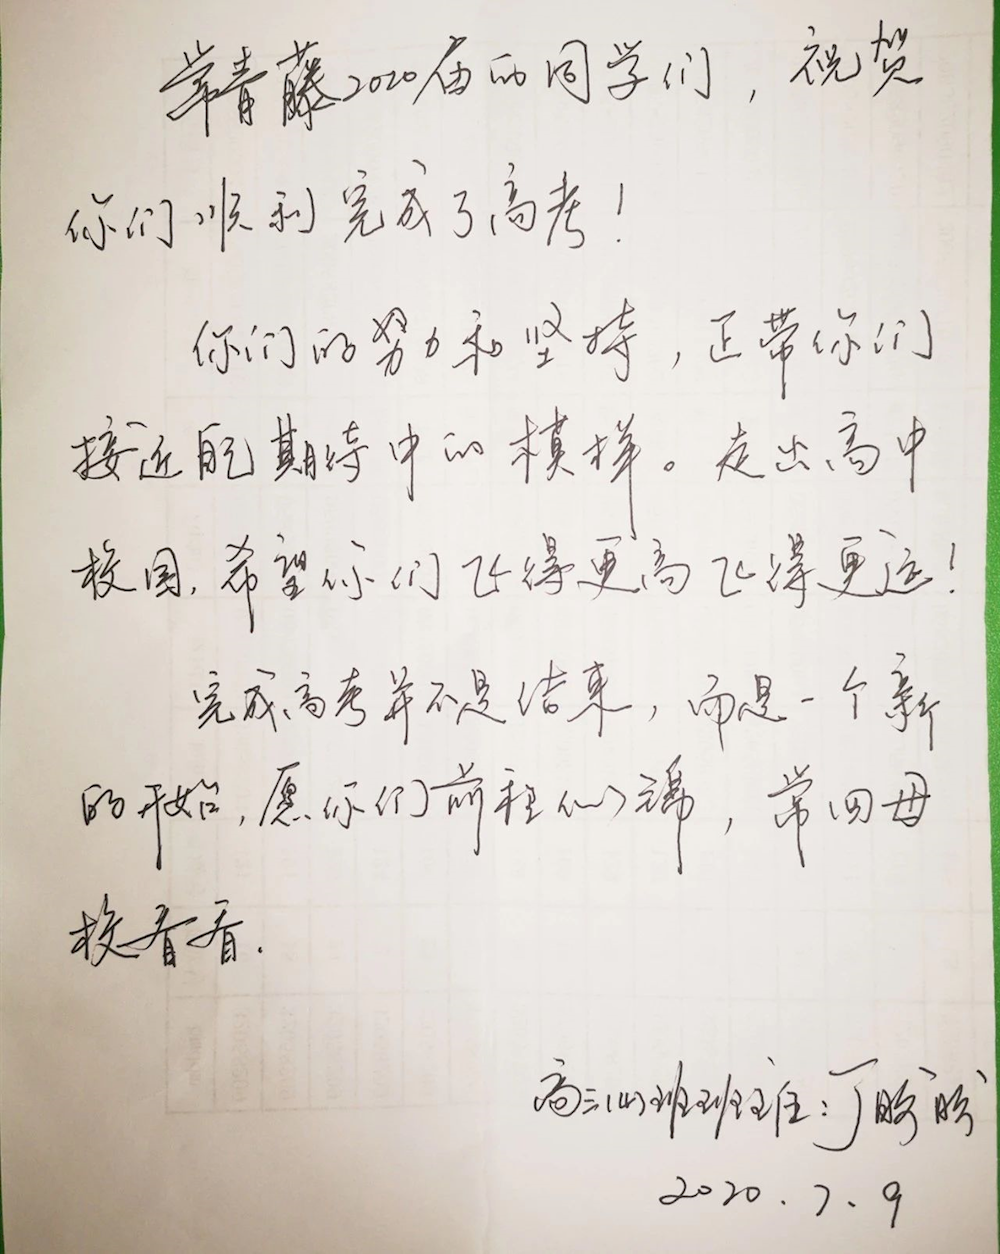 常青藤2020届的同学们，祝贺
你们顺利完成了高考！
你们的努力和坚持，正带你们
接近自己期待中的模样。走出高中
校园，希望你们飞得更高飞得更远！
完成高考并不是结束，而是一个新
的开始，愿你们前程似锦，常回母
校看看.
高三班班主任：丁
2020.7.9